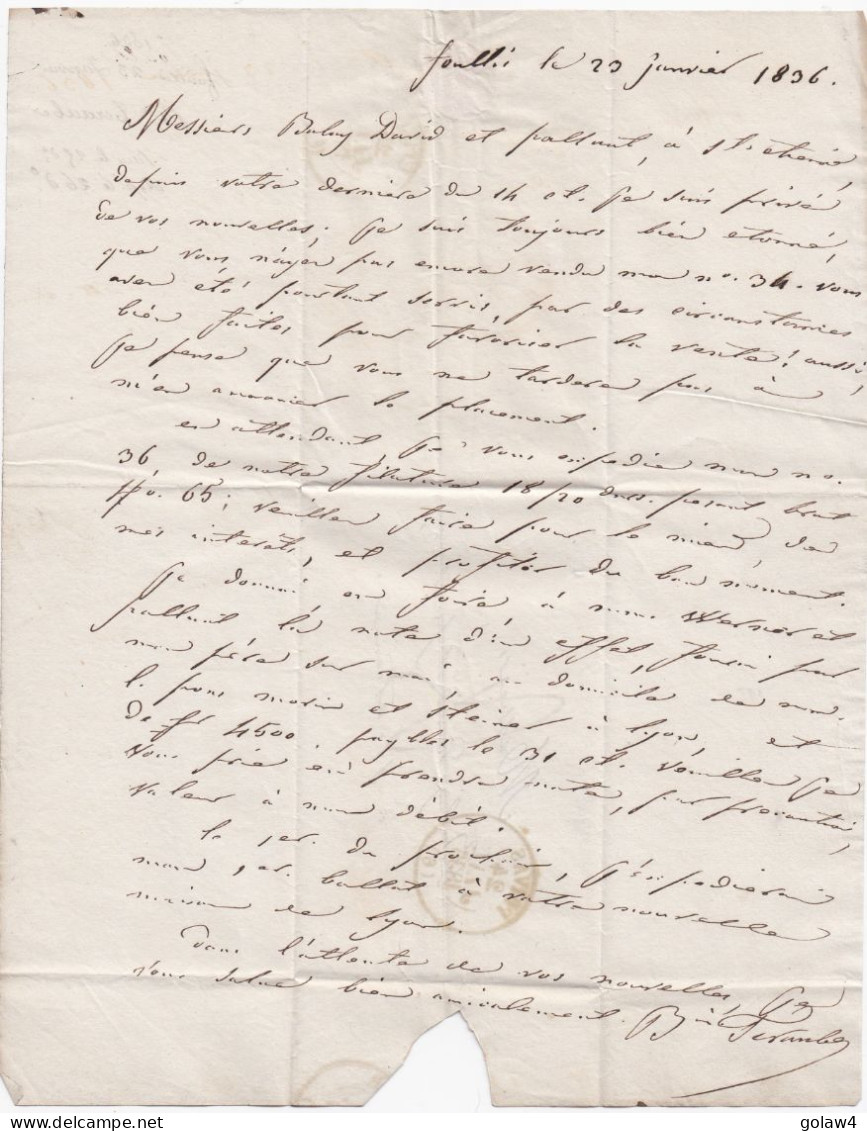 le 23 janvier 1836.
Messiers David et palluat, à St. etienne,
depuis votre derniere du 14 ct. je suis privé
de vos nouvelles. je suis toujours bien etonné,
que vous n'ayéz pas encore vendu mon no. 34. vous
aven été pourtant servis, par des circonstances
bien faites pour favoriser la vente! aussi,
je pense que vous ne tarderé pas à
m'en annoncer le placement.
en attendant, je vous expedie mon no.
36, de notre filature 18/20 pesant brut
65; veuillez faire pour le mieux, de
mes interêts, et profitér du bon moment.
je donnai en foire à mm. et
palluat la note d'un effet, fourni par
mon père sur moi au domicile de mm.
morin et Steiner à lyon, et
de fr 4500. payables le 31 ct. veuillez je
vous prie en prendre note, par precaution,
valeur à mon débit.
le 1er. du prochain, j'expedierai
mon 1er. ballot à votre nouvelle
maison de lyon.
Dans l'attente de vos nouvelles, je
vous salue bien amicalement.
golaw4